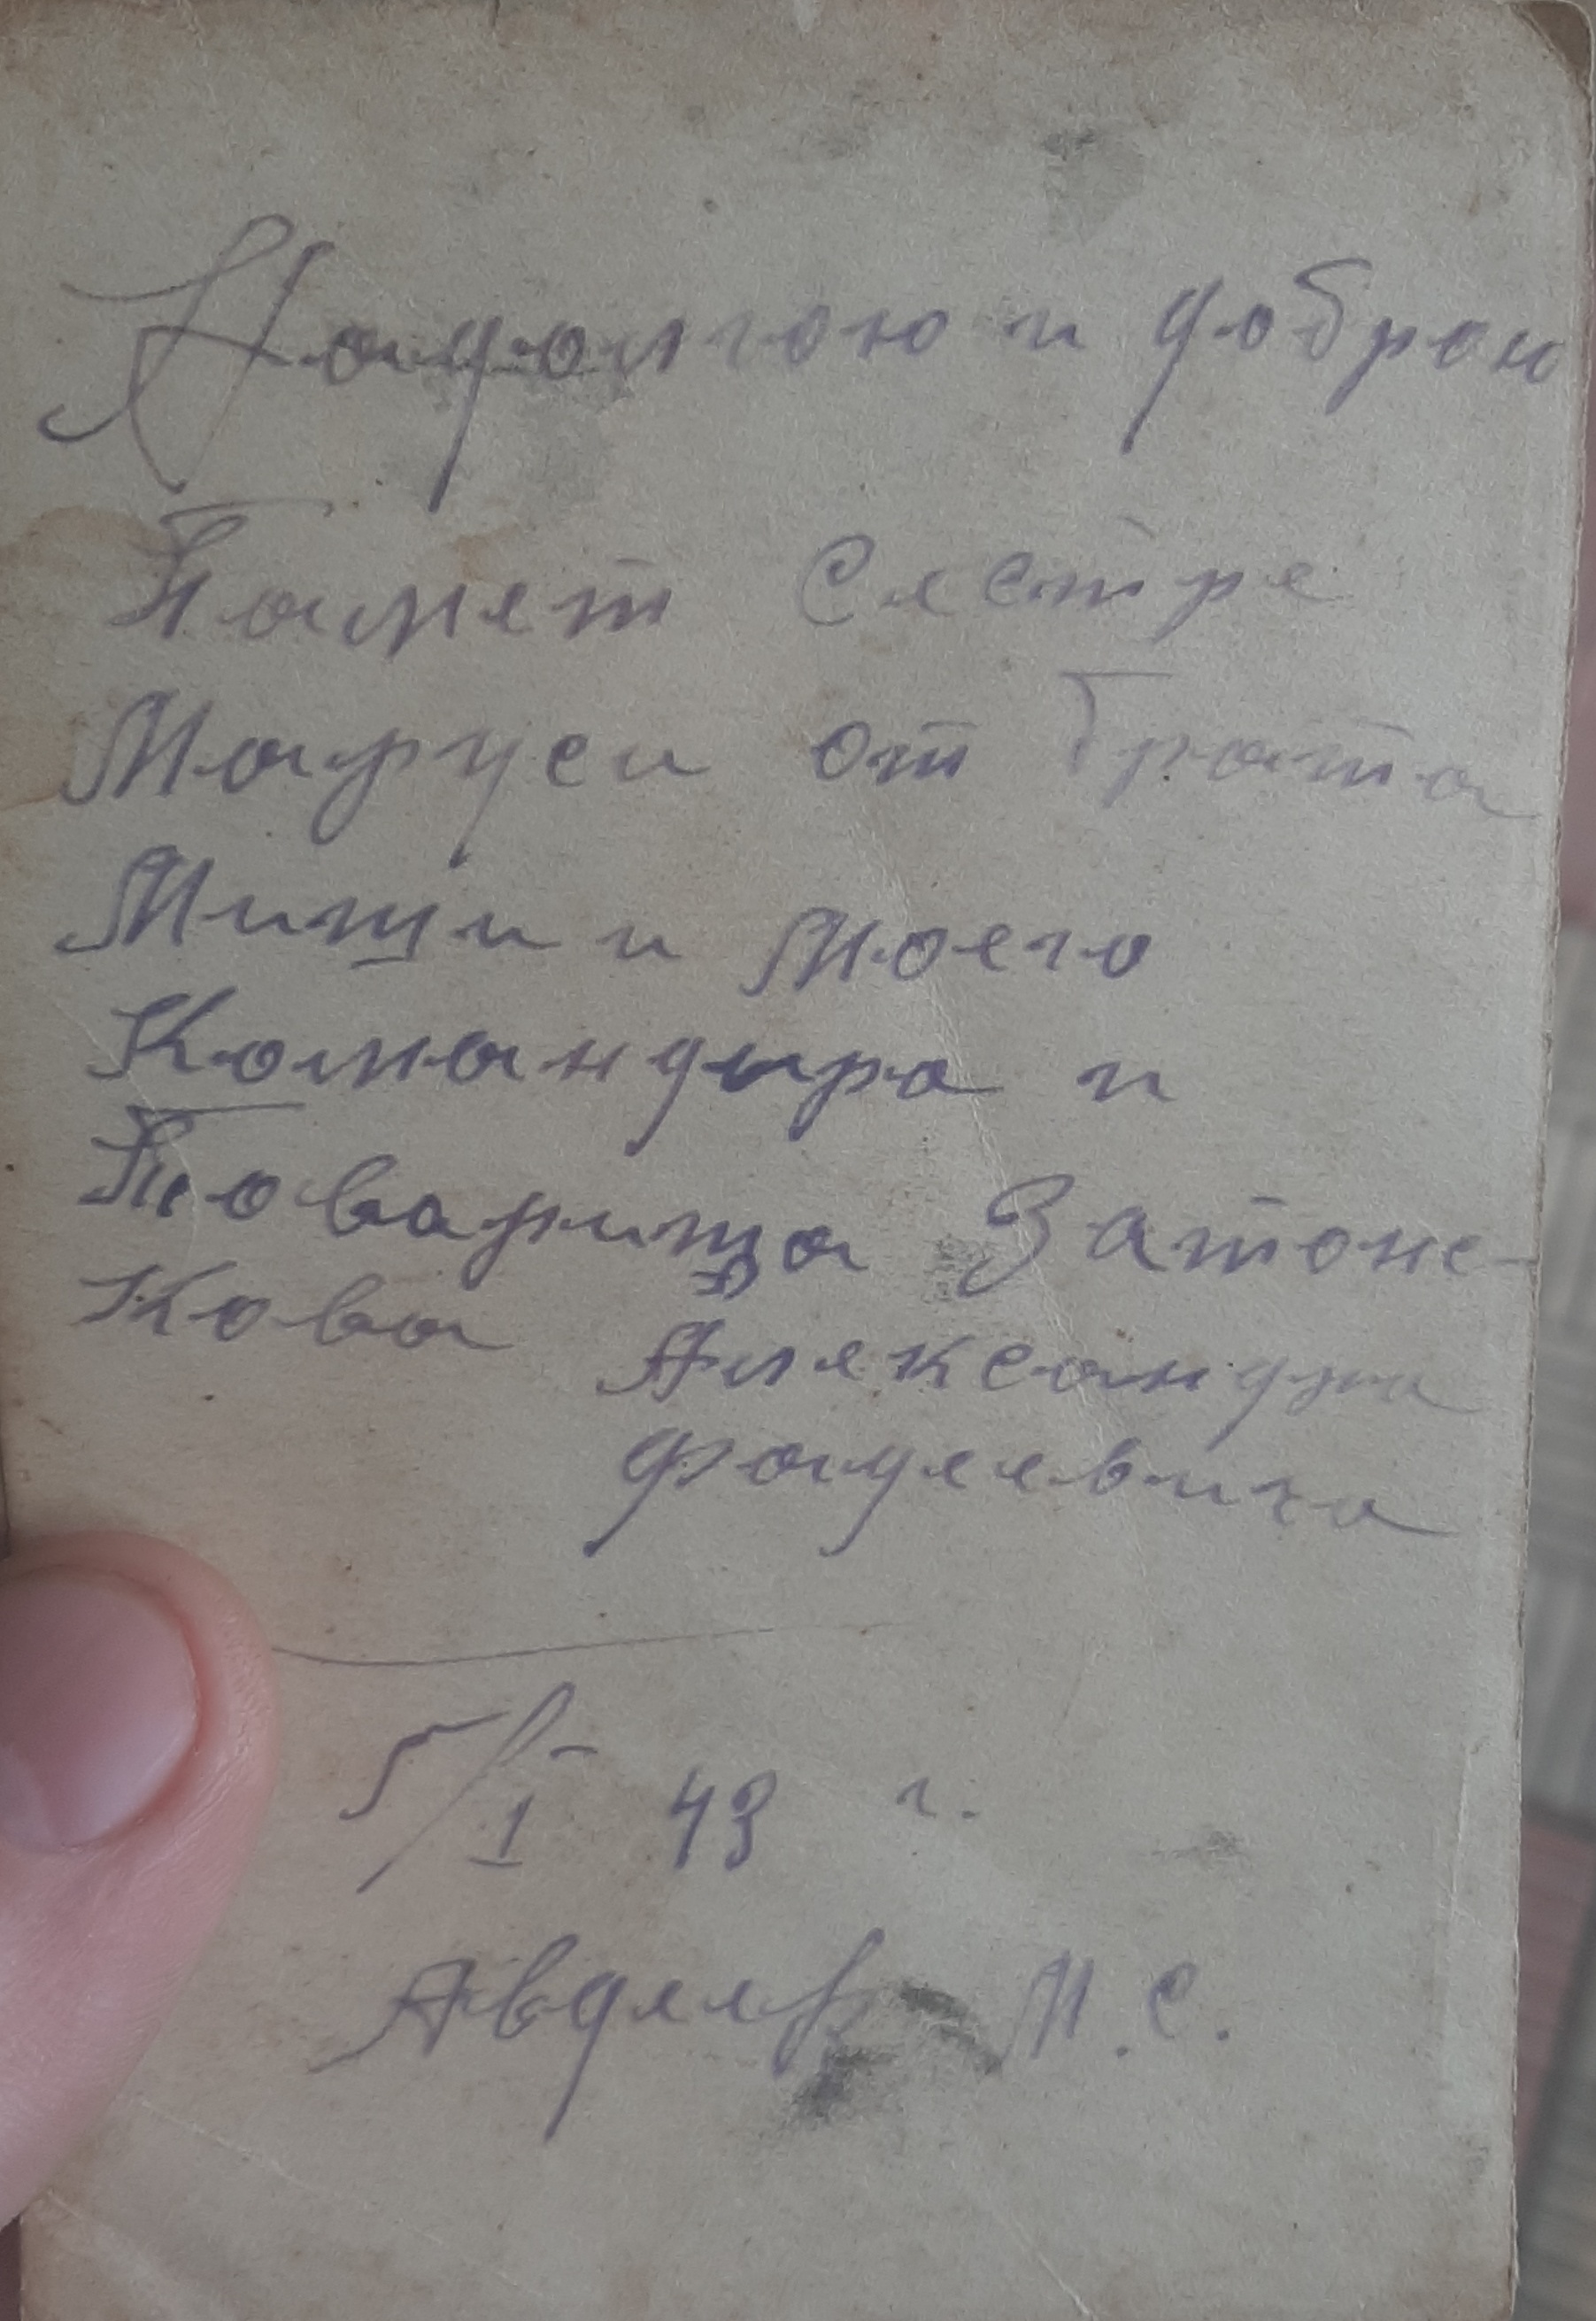 Надолгою и доброю
Памет Сестре
Маруси от брата
Миши и Моего
Командыра и
Товарища Затонс-
Кова Александра
Фадеевича
5/I 43 г.
Авдеев М.С.